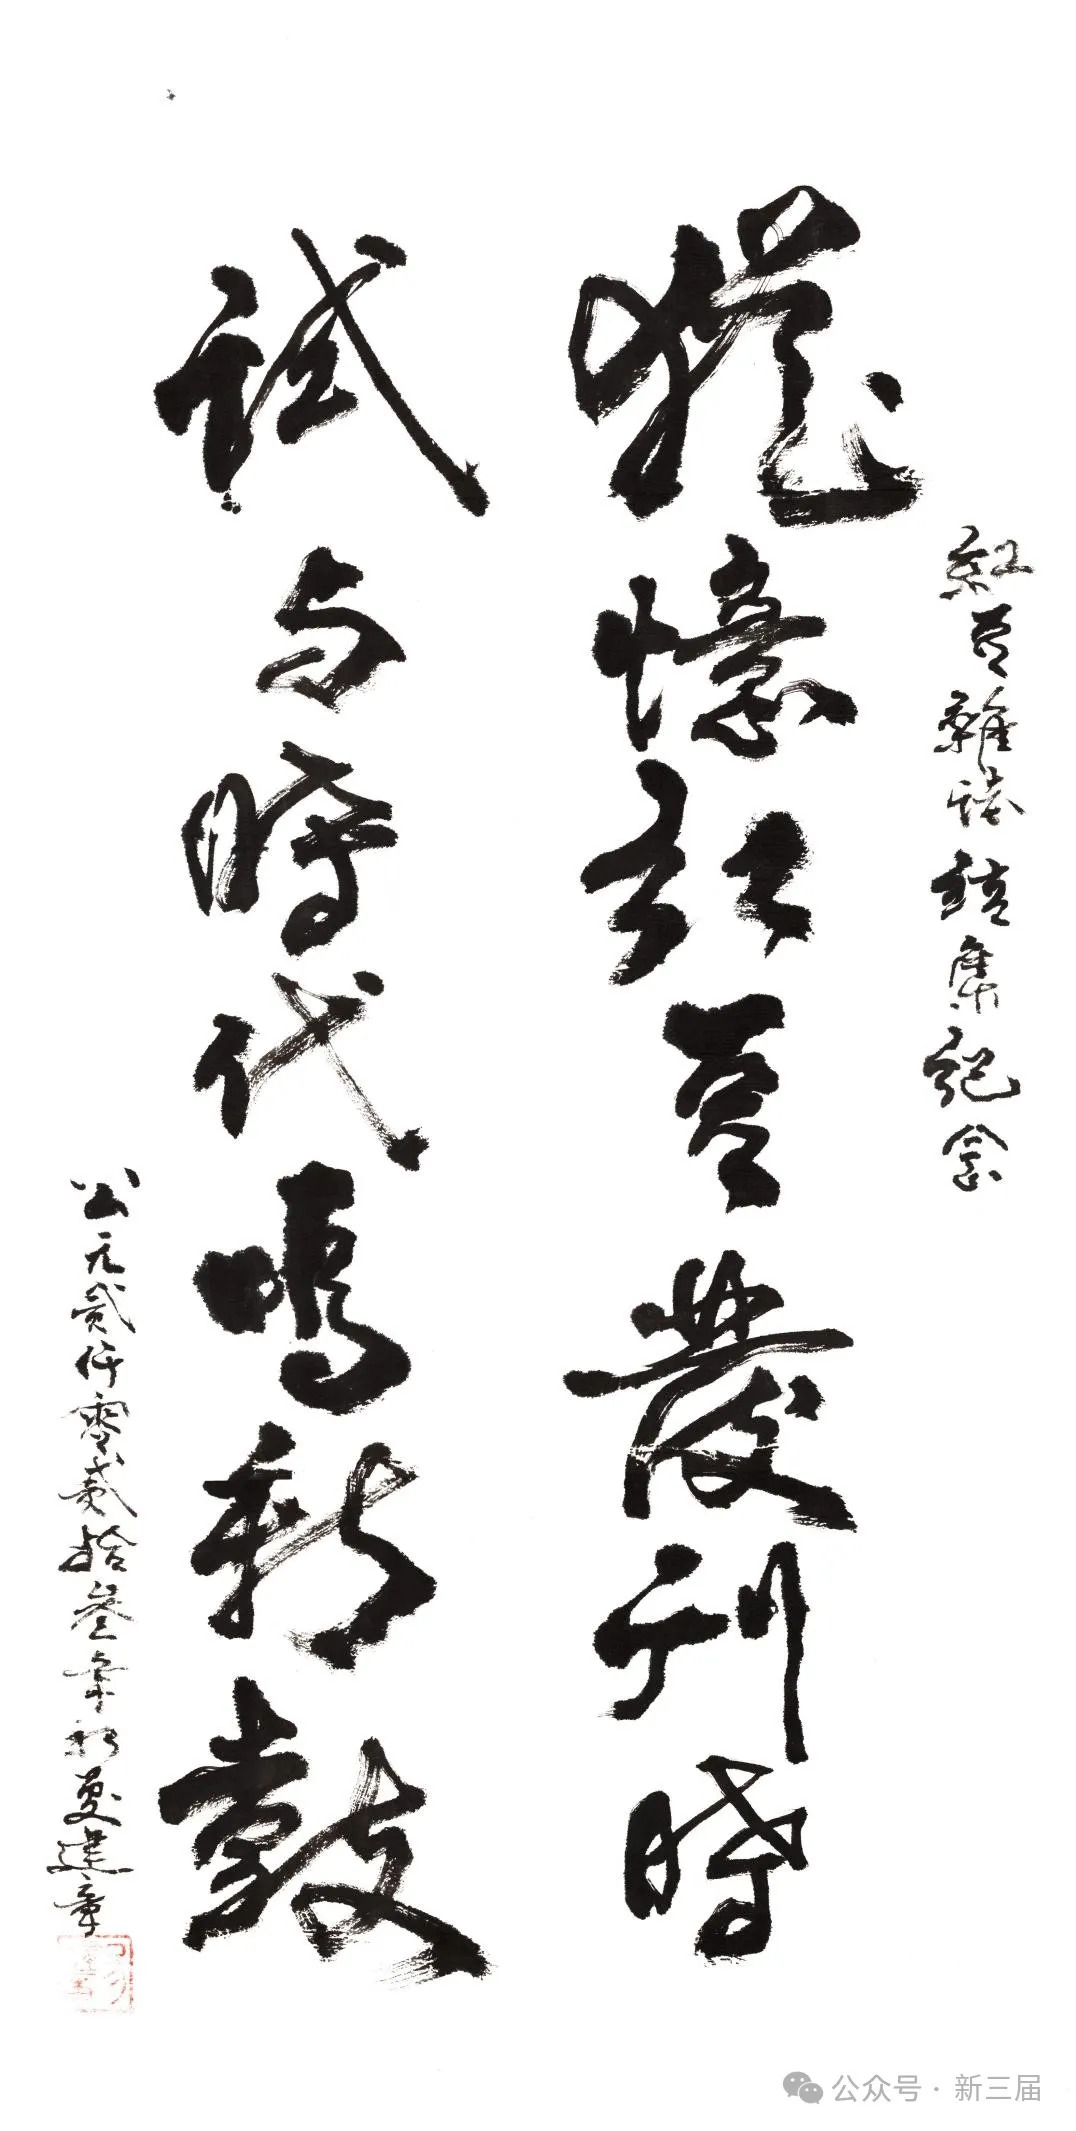 紅豆雜誌結集紀念
猶憶紅豆發刊時
試与時代鳴新鼓
公元貳仟零貳拾叁年初夏建章
公众号·新三届